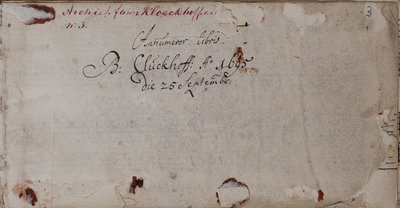 Archief fam: Kloeckhoffen
nº 3.
3
Annumeror libris
B: Cluckhoff: Aº 1695
die 25 Septembr: